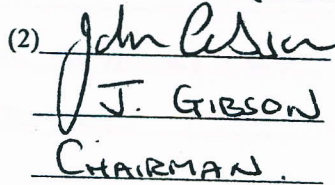 (2) John Gibson
J. GIBSON
CHAIRMAN.